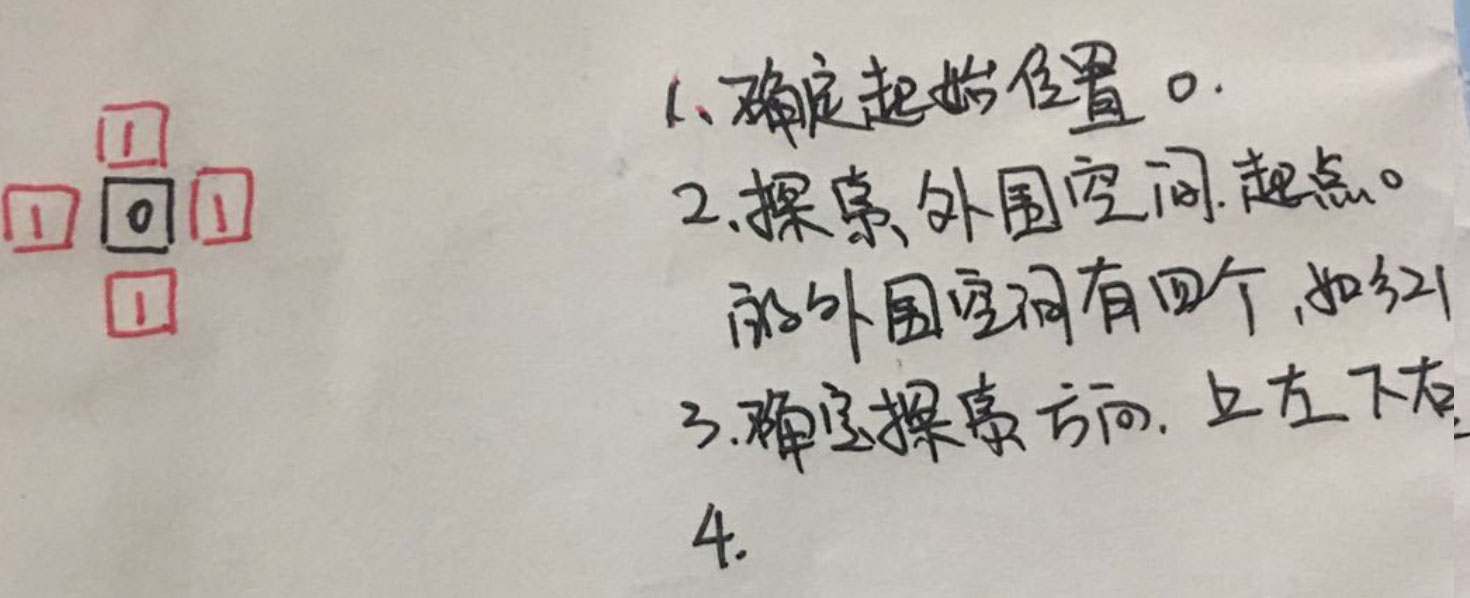 1
1 0 1
1
1、确定起始位置0.
2、探索外围空间.起点0
的外围空间有四个,如红1
3.确定探索方向.上左下右
4.